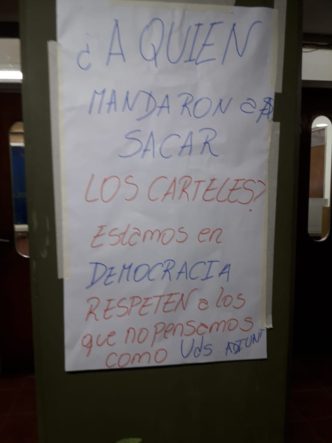 ¿A QUIEN
MANDARON a
SACAR
LOS CARTELES?
Estamos en
DEMOCRACIA
RESPETEN a los
que no pensamos
como Uds